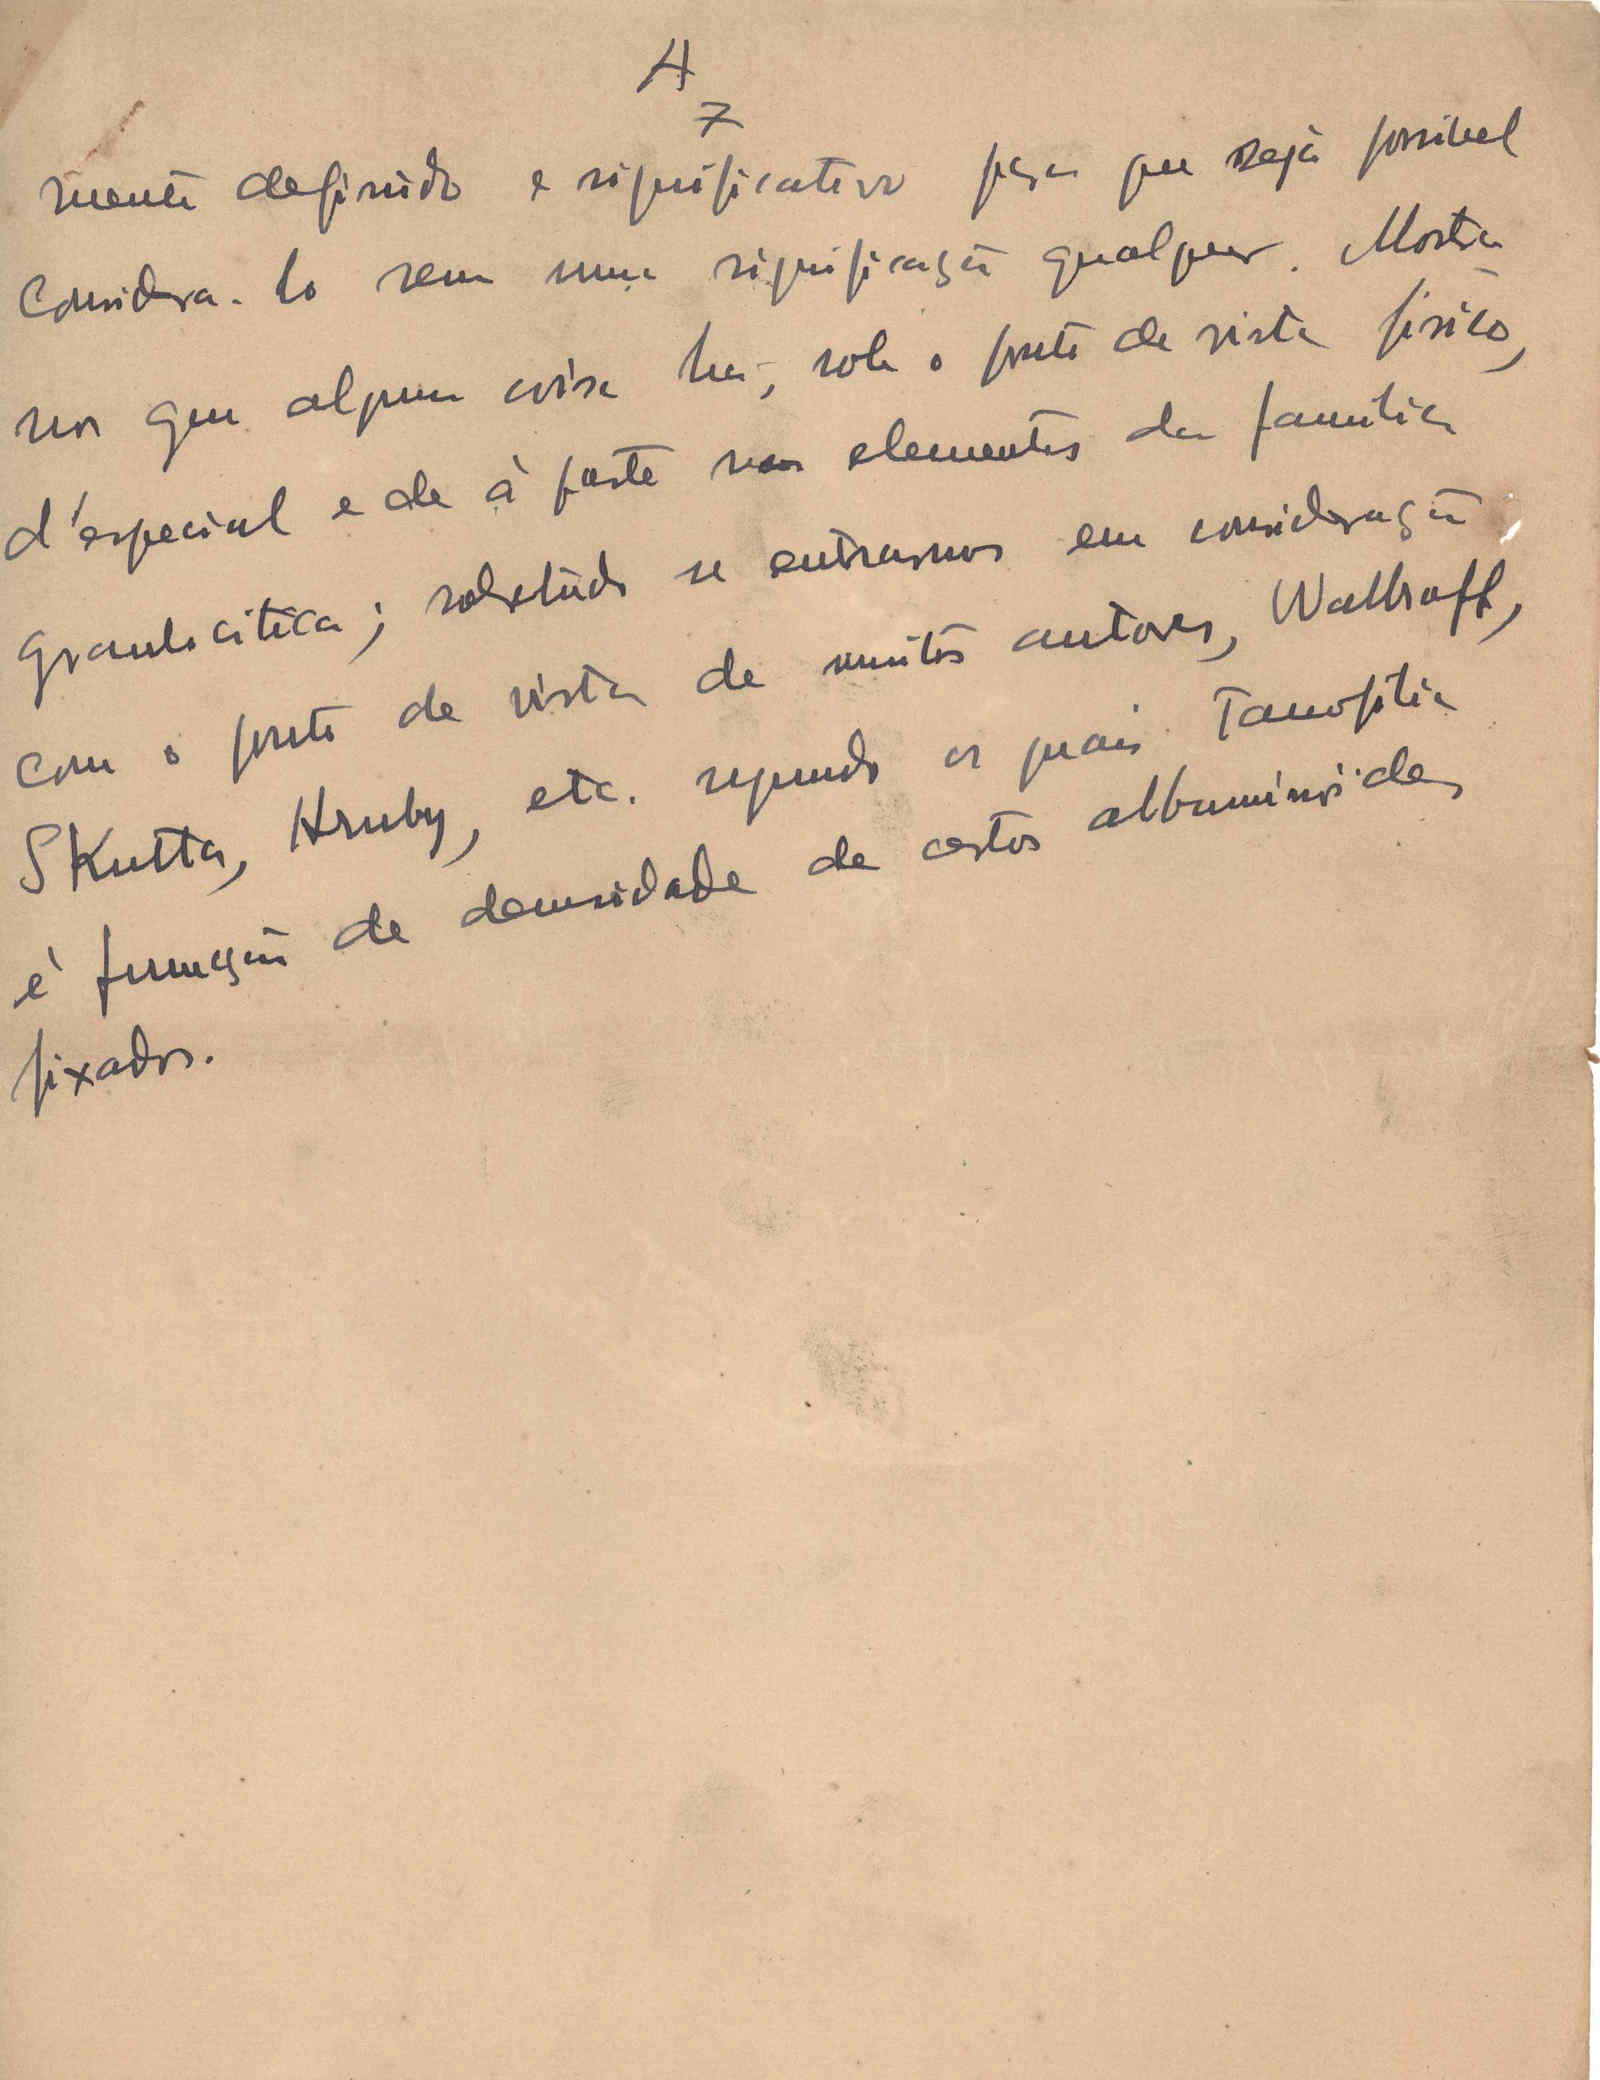 A
7
mente definido e significativo para que seja possivel
considera-lo sem uma significação qualquer. Mostra
nos que alguma coisa ha, sob o ponto de vista fisico,
d'especial e de à parte nos elementos da familia
granulocitica; sobretudo se entrarmos em consideração
com o ponto de vista de muitos autores, Wallraff,
Skutta, Hruby, etc. segundo os quais Tanofilia
é função de densidade de certos albuminoides
fixados.